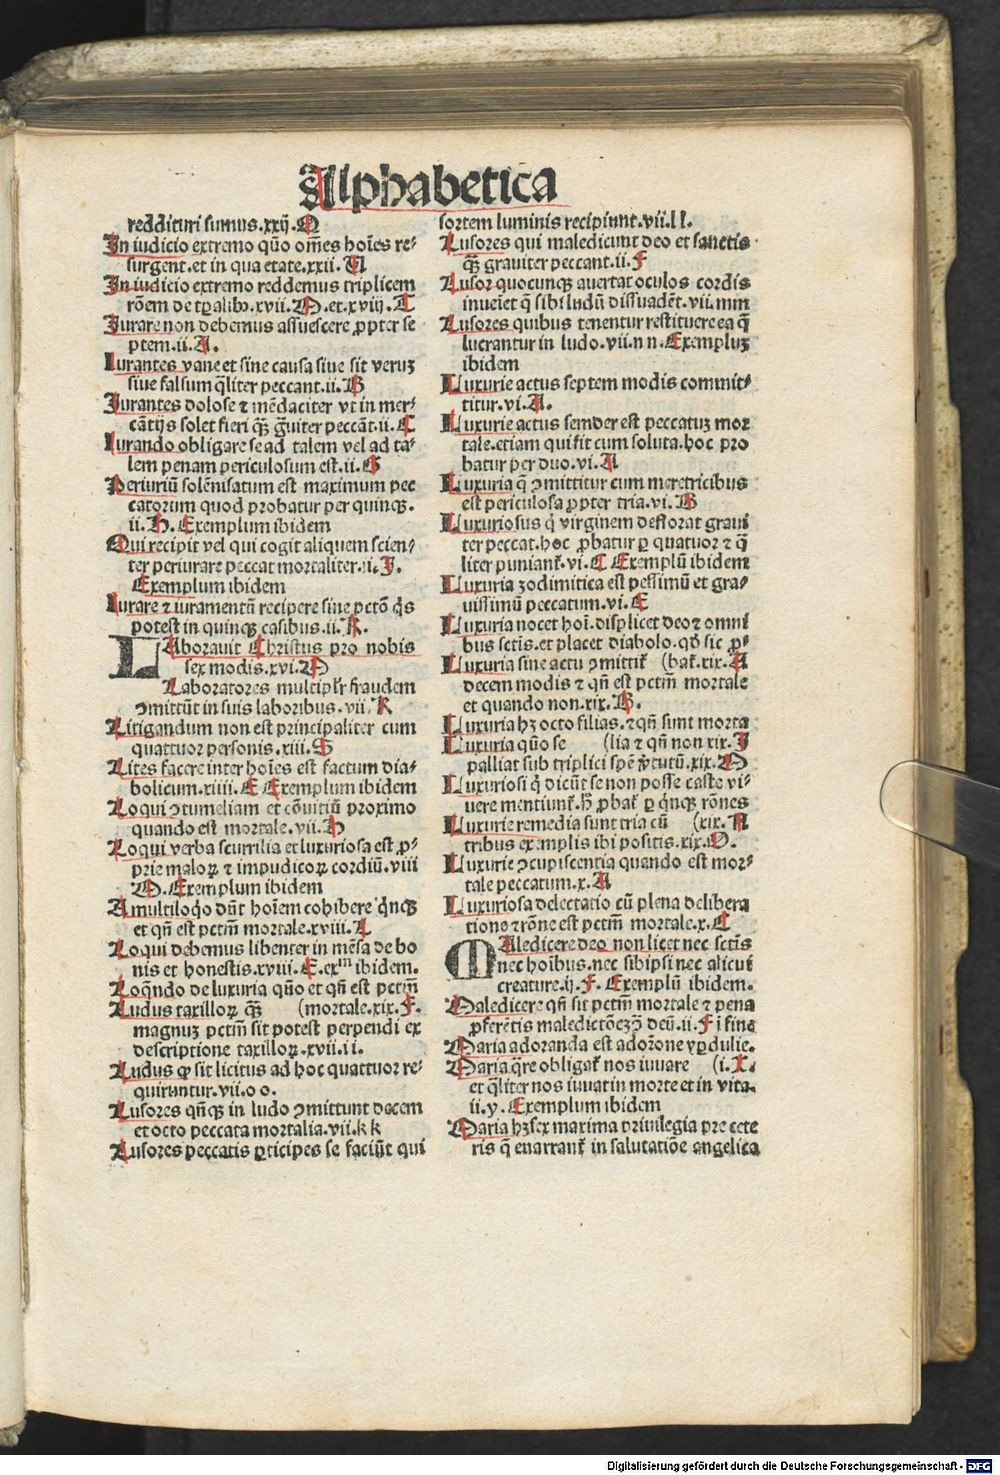 Alphabetica
reddituri sumus.xxij.M
In iudicio extremo quo om̄es hoīes re⸗
surgent.et in qua etate.xxii. N
In iudicio extremo reddemus triplicem
rōem de tꝑalibꝰ.xvii.M.et.xviij.T
Iurare non debemus assuescere ꝓpter se
ptem.ii.A.
Iurantes vane et sine causa siue sit veruꝫ
siue falsum q̄liter peccant.ii.B
Iurantes dolose ⁊ mēdaciter vt in mer⸗
cātijs solet fieri qꝫ̄ ḡuiter peccāt.ii.C
Iurando obligare se ad talem vel ad ta⸗
lem penam periculosum est.ii.G
Periuriū solēnisatum est maximum pec
catorum quod probatur per quinqꝫ.
ii.H. Exemplum ibidem
Qui recipit vel qui cogit aliquem scien⸗
ter periurare peccat mortaliter.ii.J.
Exemplum ibidem
Iurare ⁊ iuramentū recipere sine pctō q̇s
potest in quinqꝫ casibus.ii.K.
LAborauit Christus pro nobis
sex modis.xvi.M
Laboratores multipłr fraudem
ꝯmittūt in suis laboribus.vii.K
Litigandum non est principaliter cum
quattuor personis.xiii.S
Lites facere inter hoīes est factum dia⸗
bolicum.xiiii.E Exemplum ibidem
Loqui ꝯtumeliam et cōuitiū proximo
quando est mortale.vii.H
Loqui verba scurrilia et luxuriosa est ꝓ⸗
prie maloꝝ ⁊ impudicoꝝ cordiū.viii
M.Exemplum ibidem
A multiloq̇o dn̄t hoīem cohibere q̇nqꝫ
et qn̄ est pctm̄ mortale.xviii.L
Loqui debemus libenter in mēsa de bo
nis et honestis.xviii.E.exᵐ ibidem.
Loqn̄do de luxuria quo et qn̄ est pctm̄
Ludus taxilloꝝ qꝫ̄ (mortale.xix.F.
magnuꝫ pctm̄ sit potest perpendi ex
descriptione taxilloꝝ.xvii.i i.
Ludus ꝙ sit licitus ad hoc quattuor re⸗
quiruntur.vii.o o.
Lusores qn̄qꝫ in ludo ꝯmittunt decem
et octo peccata mortalia.vii.k k
Lusores peccatis ꝑticipes se faciūt qui
sortem luminis recipiunt.vii.l l.
Lusores qui maledicunt deo et sanctis
qꝫ̄ grauiter peccant.ii.F
Lusor quocunqꝫ auertat oculos cordis
inueīet q̄ sibi ludū dissuadēt.vii.mm
Lusores quibus tenentur restituere ea q̄
lucrantur in ludo.vii.n n.Exempluꝫ
ibidem
Luxurie actus septem modis commit⸗
titur.vi.A.
Luxurie actus semper est peccatuꝫ mor
tale.etiam qui fit cum soluta.hoc pro
batur per duo.vi.A
Luxuria q̄ ꝯmittitur cum meretricibus
est periculosa ꝓpter tria.vi.B
Luxuriosus q̇ virginem deflorat graui
ter peccat.hoc ꝓbatur ꝑ quatuor ⁊ q̄
liter puniant̄.vi.C Exemplū ibidem
Luxuria zodimitica est pessimū et gra⸗
uissimū peccatum.vi.E
Luxuria nocet hoī.displicet deo ⁊ omni
bus sctis.et placet diabolo.qḋ sic ꝓ⸗
Luxuria sine actu ꝯmittit̄ (bat̄.xix.A
decem modis ⁊ qn̄ est pctm̄ mortale
et quando non.xix.B.
Luxuria hꝫ octo filias.⁊ qn̄ sunt morta
Luxuria quo se (lia ⁊ qn̄ non xix.J
palliat sub triplici spē v̇tutū.xix.M
Luxuriosi q̇ dicūt se non posse caste vi⸗
uere mentiunt̄.h̄ ꝓbat̄ ꝑ q̇nqꝫ rōnes
Luxurie remedia sunt tria cū (xix.N
tribus exemplis ibi positis.xix.O.
Luxurie ꝯcupiscentia quando est mor⸗
tale peccatum.x.A
Luxuriosa delectatio cū plena delibera
tione ⁊ rōne est pctm̄ mortale.x.C
MAledicere deo non licet nec sctīs
nec hoībus.nec sibipsi nec alicui
creature.ij.F. Exemplū ibidem.
Maledicere qn̄ sit pctm̄ mortale ⁊ pena
ꝓferētis maledictōeꝫ ꝯ̄ deū.ii.F i fine
Maria adoranda est adorōne yꝑdulie.
Maria q̄re obligat̄ nos iuuare (i.X.
et q̄liter nos iuuat in morte et in vita.
ii.y.Exemplum ibidem
Maria hꝫ sex maxima priuilegia pre cete
ris q̄ enarrant̄ in salutatiōe angelica
Digitalisierung gefördert durch die Deutsche Forschungsgemeinschaft - DFG